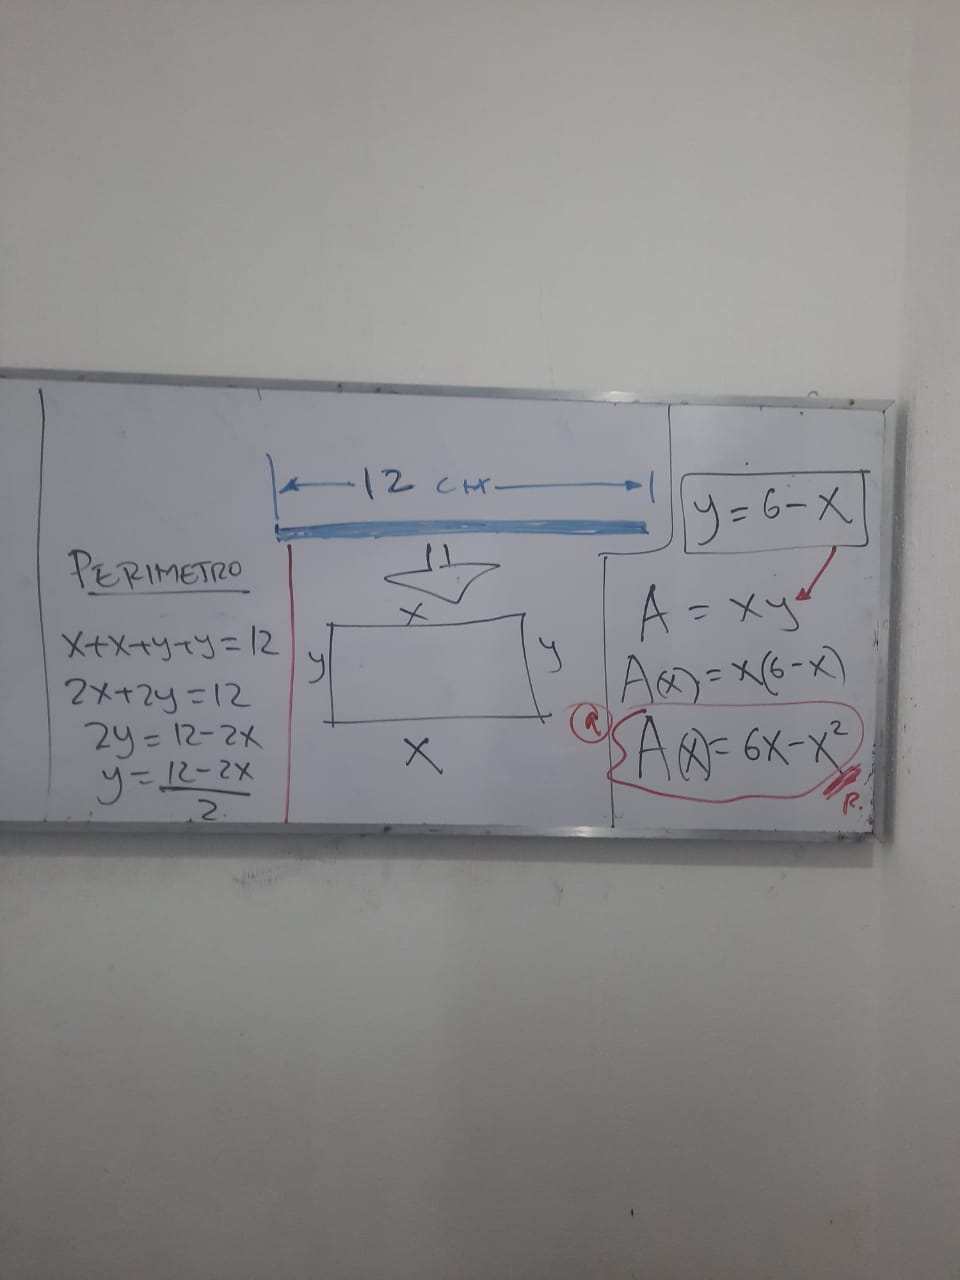 12 cm
PERIMETRO
x+x+y+y=12
2x+2y=12
2y=12-2x
y=12-2x
2
x
y
y
x
y=6-x
A=xy
A(x)=x(6-x)
a
A(x)=6x-x²
R.